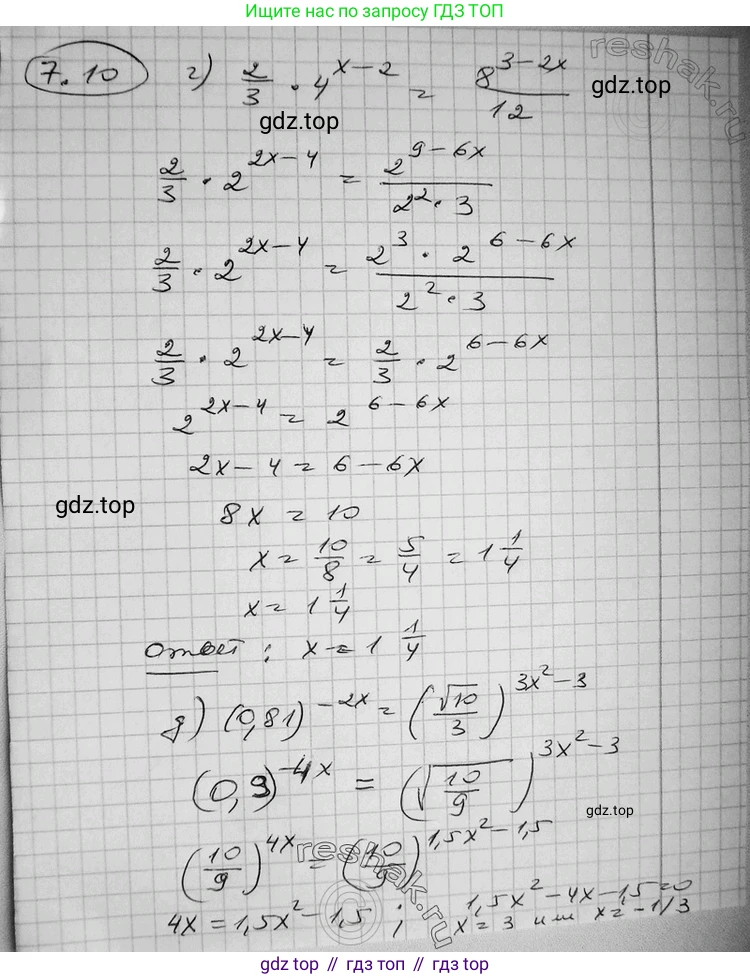 Ищите нас по запросу ГДЗ ТОП
7.10 г) 2/3 · 4^(x-2) = 8^(3-2x)/12
gdz.top
gdz.top
reshak.ru
2/3 · 2^(2x-4) = 2^(9-6x)/(2^2 · 3)
2/3 · 2^(2x-4) = (2^3 · 2^(6-6x))/(2^2 · 3)
2/3 · 2^(2x-4) = 2/3 · 2^(6-6x)
2^(2x-4) = 2^(6-6x)
2x - 4 = 6 - 6x
gdz.top
8x = 10
x = 10/8 = 5/4 = 1 1/4
x = 1 1/4
Ответ: x = 1 1/4
д) (0,81)^(-2x) = (√10/3)^(3x^2-3)
(0,9)^(-4x) = (√(10/9))^(3x^2-3)
gdz.top
(10/9)^(4x) = (10/9)^(1,5x^2-1,5)
reshak.ru
4x = 1,5x^2 - 1,5 ; 1,5x^2 - 4x - 1,5 = 0
x = 3 или x = -1/3
gdz.top // гдз топ // gdz.top // гдз топ